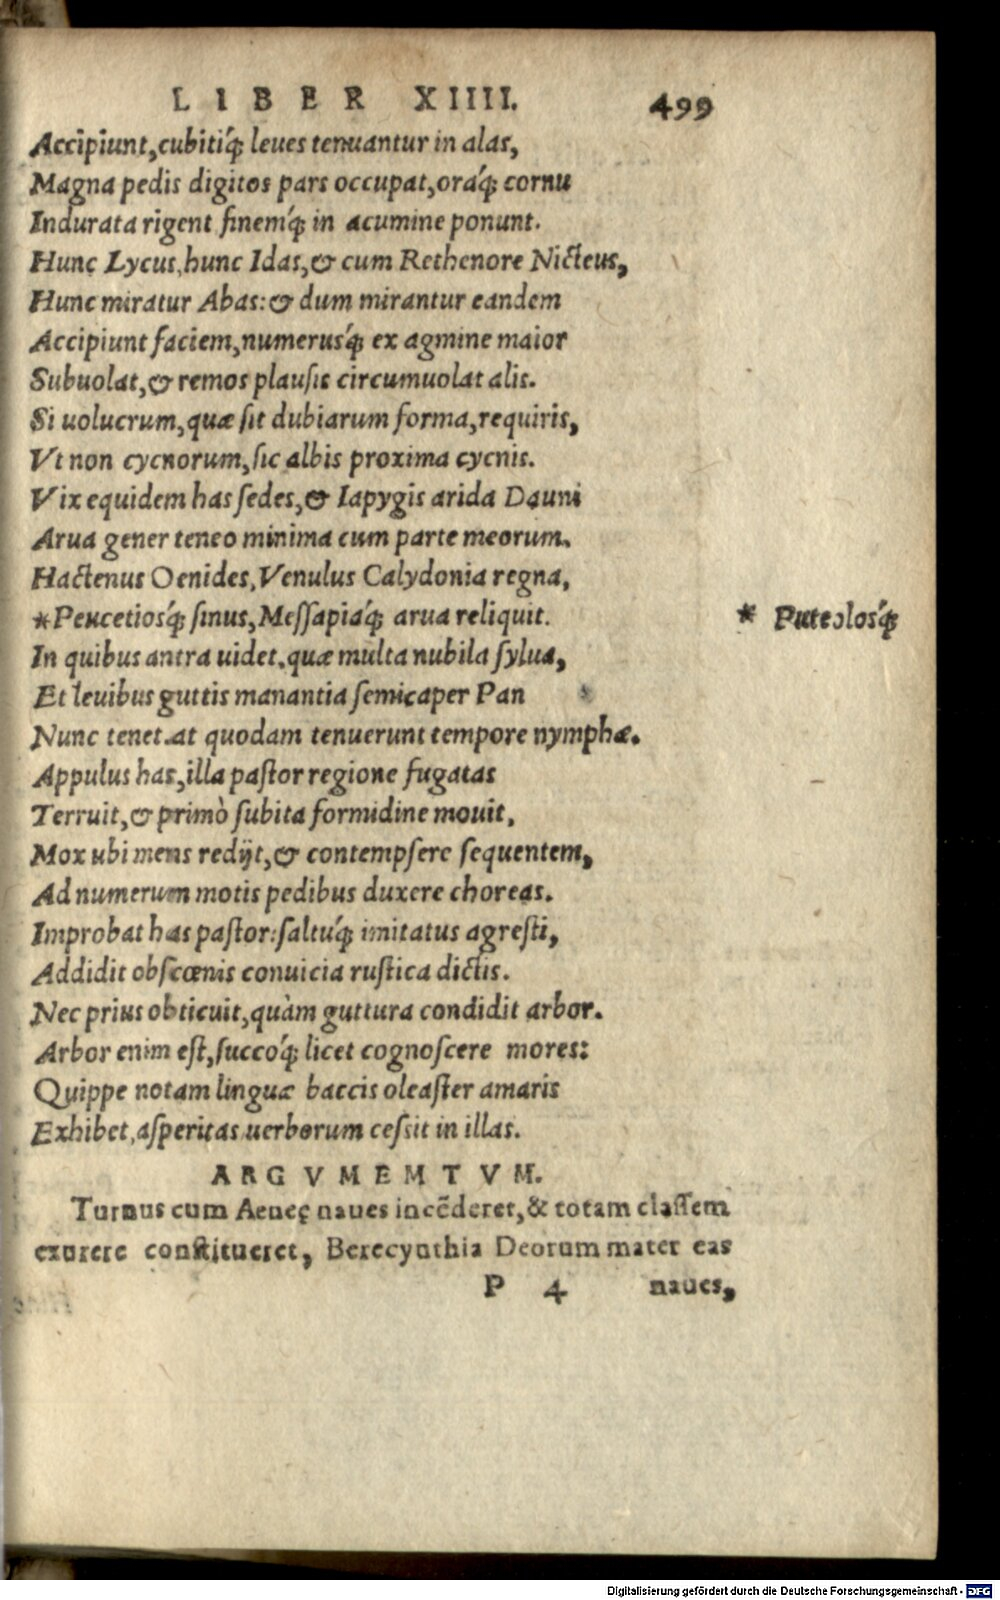 LIBER XIIII. 499
Accipiunt,cubitiq́; leues tenuantur in alas,
Magna pedis digitos pars occupat,oraq́; cornu
Indurata rigent finemq́; in acumine ponunt.
Hunc Lycus,hunc Idas,& cum Rethenore Nicteus,
Hunc miratur Abas:& dum mirantur eandem
Accipiunt faciem,numerusq́; ex agmine maior
Subuolat,& remos plausis circumuolat alis.
Si uolucrum,quæ sit dubiarum forma,requiris,
Vt non cycnorum,sic albis proxima cycnis.
Vix equidem has sedes,& Iapygis arida Dauni
Arua gener teneo minima cum parte meorum.
Hactenus Oenides,Venulus Calydonia regna,
*Peucetiosq́; sinus,Messapiaq́; arua reliquit.
* Puteolosq́;
In quibus antra uidet,quæ multa nubila sylua,
Et leuibus guttis manantia semicaper Pan
Nunc tenet.at quodam tenuerunt tempore nymphæ.
Appulus has,illa pastor regione fugatas
Terruit,& primò subita formidine mouit,
Mox ubi mens redijt,& contempsere sequentem,
Ad numerum motis pedibus duxere choreas.
Improbat has pastor:saltuq́; imitatus agresti,
Addidit obscœnis conuicia rustica dictis.
Nec prius obticuit,quàm guttura condidit arbor.
Arbor enim est,succoq́; licet cognoscere mores:
Quippe notam linguæ baccis oleaster amaris
Exhibet,asperitas uerborum cessit in illas.
ARGVMEMTVM.
Turnus cum Aeneę naues incēderet,& totam classem
exurere constitueret, Berecynthia Deorum mater eas
P 4 naues,
Digitalisierung gefördert durch die Deutsche Forschungsgemeinschaft - DFG